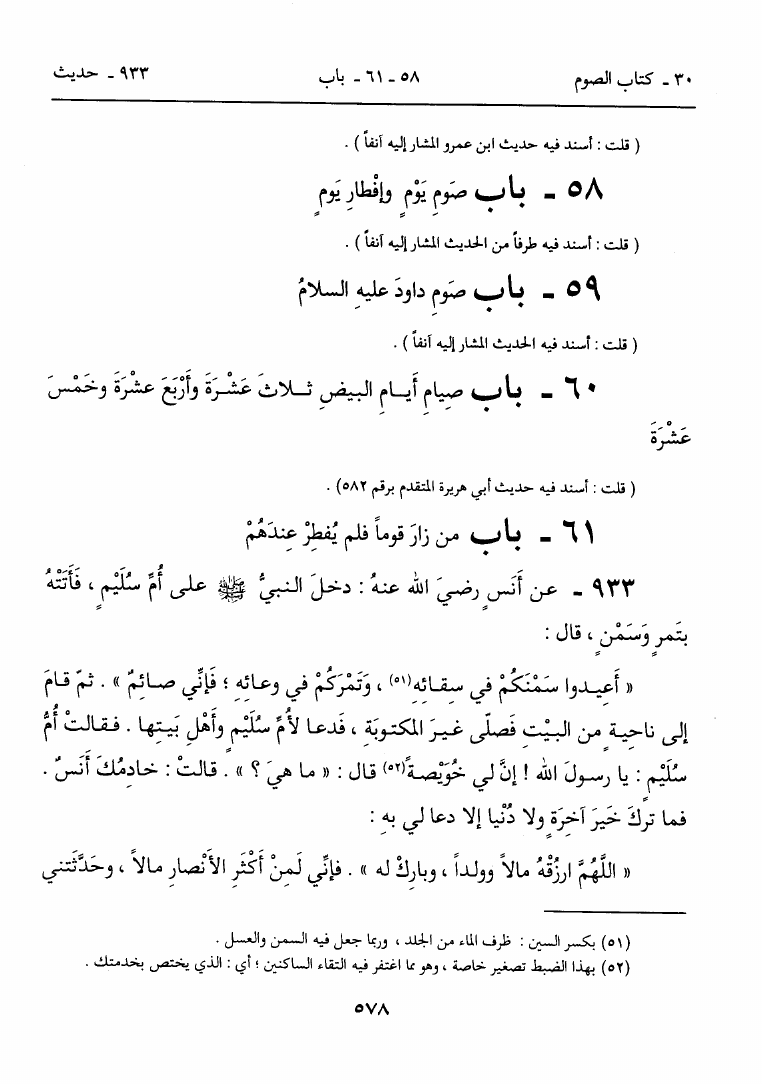 ٣٠ ـ كتاب الصوم ٥٨ ـ ٦١ ـ باب ٩٣٣ ـ حديث
( قلت : أسند فيه حديث ابن عمرو المشار إليه آنفاً ) .
٥٨ ـ باب صَومِ يَوْمٍ وإفْطارِ يَومٍ
( قلت : أسند فيه طرفاً من الحديث المشار إليه آنفاً ) .
٥٩ ـ باب صَومِ داودَ عليهِ السلامُ
( قلت : أسند فيه الحديث المشار إليه آنفاً ) .
٦٠ ـ باب صيامِ أيـامِ البيضِ ثـلاثَ عَشْـرَةَ وأَرْبَعَ عشْرَةَ وخَمْسَ
عَشْرَةَ
( قلت : أسند فيه حديث أبي هريرة المتقدم برقم ٥٨٢) .
٦١ ـ باب من زارَ قوماً فلم يُفطِرْ عِندَهُمْ
٩٣٣ ـ عن أنَسٍ رضيَ الله عنهُ : دخلَ النبيُّ ﷺ على أُمِّ سُلَيْمٍ ، فَأَتَتْهُ
بتَمرٍ وَسَمْنٍ ، قال :
« أَعِيـدوا سَمْنَكُمْ في سِقـائِهِ(٥١) ، وَتَمْرَكُمْ في وعائِهِ ؛ فَإنِّي صـائِمٌ » . ثمّ قـامَ
إلى ناحيـةٍ من البيْتِ فَصلّى غيـرَ المكتوبَةِ ، فَدعا لأمِّ سُلَيْمٍ وأَهْلِ بَيتِها . فـقالتْ أُمُّ
سُلَيْمٍ : يا رسولَ الله ! إنَّ لي خُوَيْصـةً(٥٢) قال : « ما هيَ ؟ » . قالتْ : خادِمُكَ أنَسٌ .
فما تركَ خَيرَ آخِرَةٍ ولا دُنْيا إلا دعا لي بهِ :
« اللَّهُمَّ ارزُقْهُ مالاً وولداً ، وبارِكْ له » . فإنِّي لَمِنْ أَكْثَرِ الأَنْصارِ مالاً ، وحَدَّثَتني
(٥١) بكسر السين : ظرف الماء من الجلد ، وربما جعل فيه السمن والعسل .
(٥٢) بهذا الضبط تصغير خاصة ، وهو مما اغتفر فيه التقاء الساكنين ؛ أي : الذي يختص بخدمتك .
٥٧٨